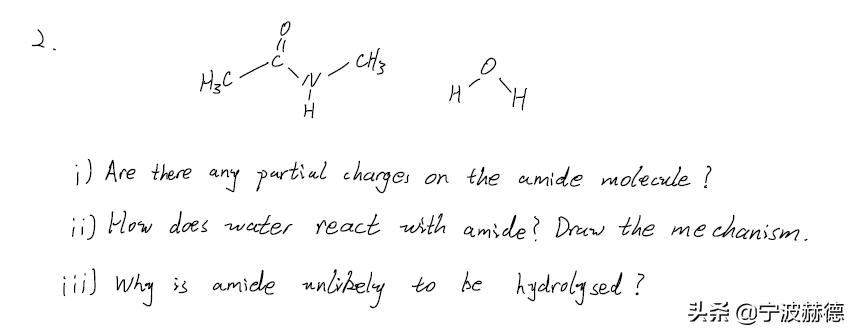 2.
O
H₃C C N CH₃
H
O
H H
i) Are there any partial charges on the amide molecule?
ii) How does water react with amide? Draw the mechanism.
iii) Why is amide unlikely to be hydrolysed?
头条 @宁波赫德